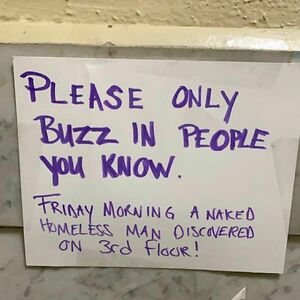 PLEASE ONLY
BUZZ IN PEOPLE
YOU KNOW.
FRIDAY MORNING A NAKED
HOMELESS MAN DISCOVERED
ON 3rd FLOOR!